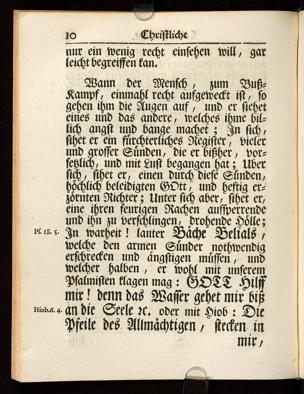 10 Christliche
nur ein wenig recht einsehen will, gar
leicht begreiffen kan.
Wann der Mensch, zum Buß-
Kampf, einmahl recht aufgeweckt ist, so
gehen ihm die Augen auf, und er siehet
eines und das andere, welches ihme bil-
lich angst und bange machet; In sich,
sihet er ein fürchterliches Register, vieler
und grosser Sünden, die er bißher, vor-
setzlich, und mit Lust begangen hat; Uber
sich, sihet er, einen durch diese Sünden,
höchlich beleidigten GOtt, und heftig er-
zörnten Richter; Unter sich aber, sihet er,
eine ihren feurigen Rachen aufsperrende
und ihn zu verschlingen, drohende Hölle;
Ps. 18. 5. In warheit! lauter Bäche Belials,
welche den armen Sünder nothwendig
erschrecken und ängstigen müssen, und
welcher halben, er wohl mit unserem
Psalmisten klagen mag: GOTT Hilff
mir! denn das Wasser gehet mir biß
Hiob. 6. 4. an die Seele ꝛc. oder mit Hiob: Die
Pfeile des Allmächtigen, stecken in
mir,